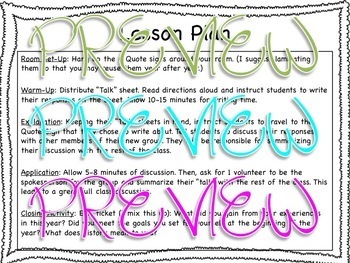 Lesson Plan
PREVIEW
Room Set-Up: Hang the Quote signs around your room. (I suggest laminating
them so that you may reuse them year after year.)
Warm-Up: Distribute "Talk" sheet. Read directions aloud and instruct students to write
their responses on the sheet. Allow 10-15 minutes for writing time.
PREVIEW
Explanation: Keeping the sheets in hand, instruct students to travel to the
Quote Sign that they chose to write about. Tell students to discuss their responses
with other members of their new group. They will be responsible for summarizing
their discussion with the rest of the class.
Application: Allow 5-8 minutes of discussion. Then, ask for 1 volunteer to be the
spokesperson for the group and summarize their "talk" with the rest of the class. This will
lead to a great full class discussion.
PREVIEW
Closing Activity: Exit ticket
this year? Did you meet the goals you set for yourself at the beginning of the
year? What does history mean to you?